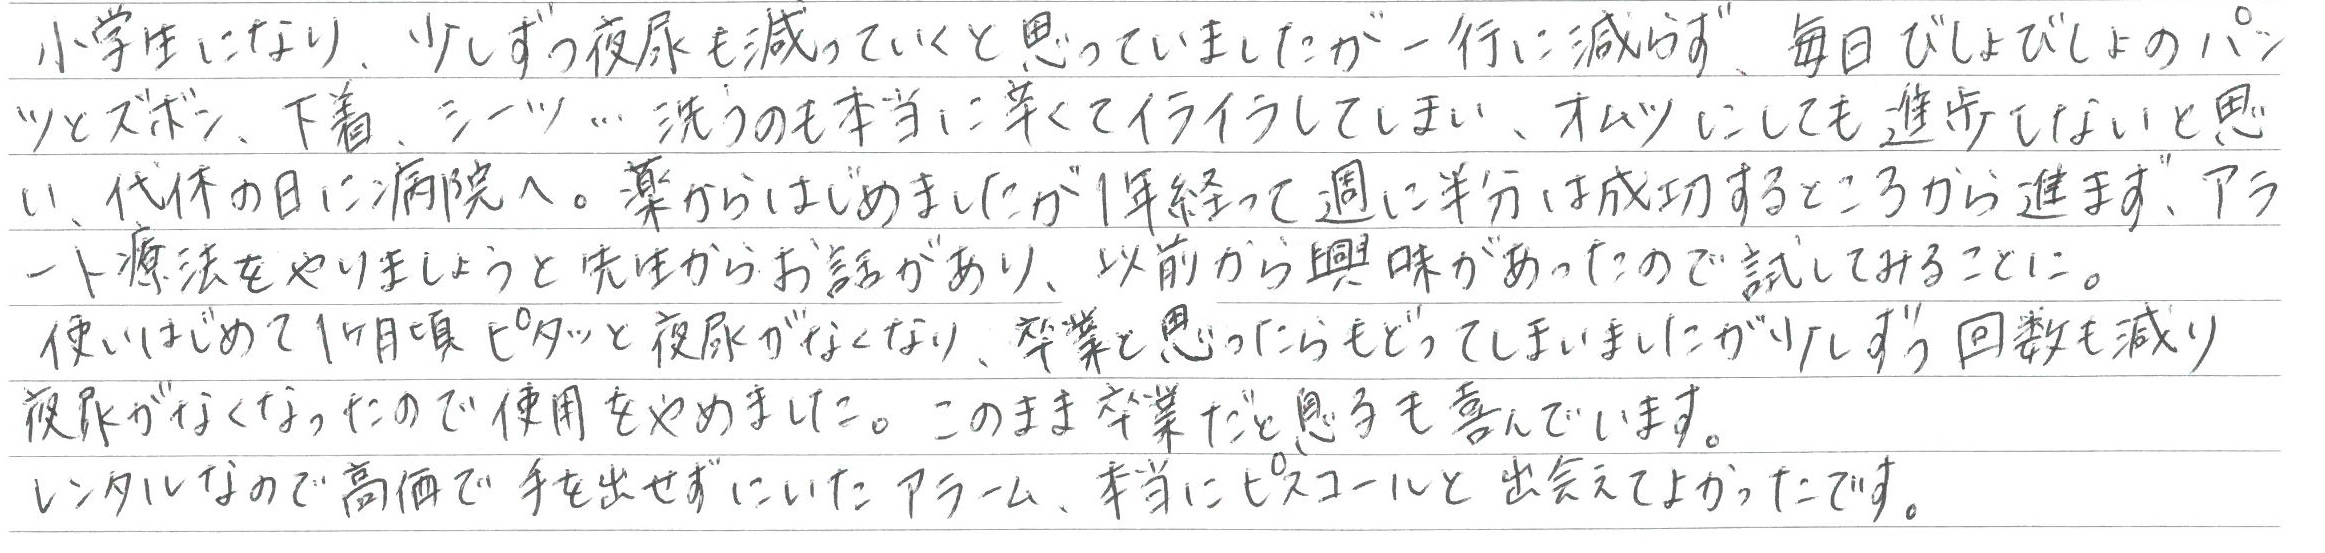 小学生になり、少しずつ夜尿も減っていくと思っていましたが一行に減らず、毎日びしょびしょのパン
ツとズボン、下着、シーツ…洗うのも本当に辛くてイライラしてしまい、オムツにしても進歩しないと思
い、代休の日に病院へ。薬からはじめましたが1年経って週に半分は成功するところから進まず、アラ
ート療法をやりましょうと先生からお話があり、以前から興味があったので試してみることに。
使いはじめて1ヶ月頃ピタッと夜尿がなくなり、卒業と思ったらもどってしまいましたが少しずつ回数も減り
夜尿がなくなったので使用をやめました。このまま卒業だと息子も喜んでいます。
レンタルなので高価で手を出せずにいたアラーム、本当にピスコールと出会えてよかったです。